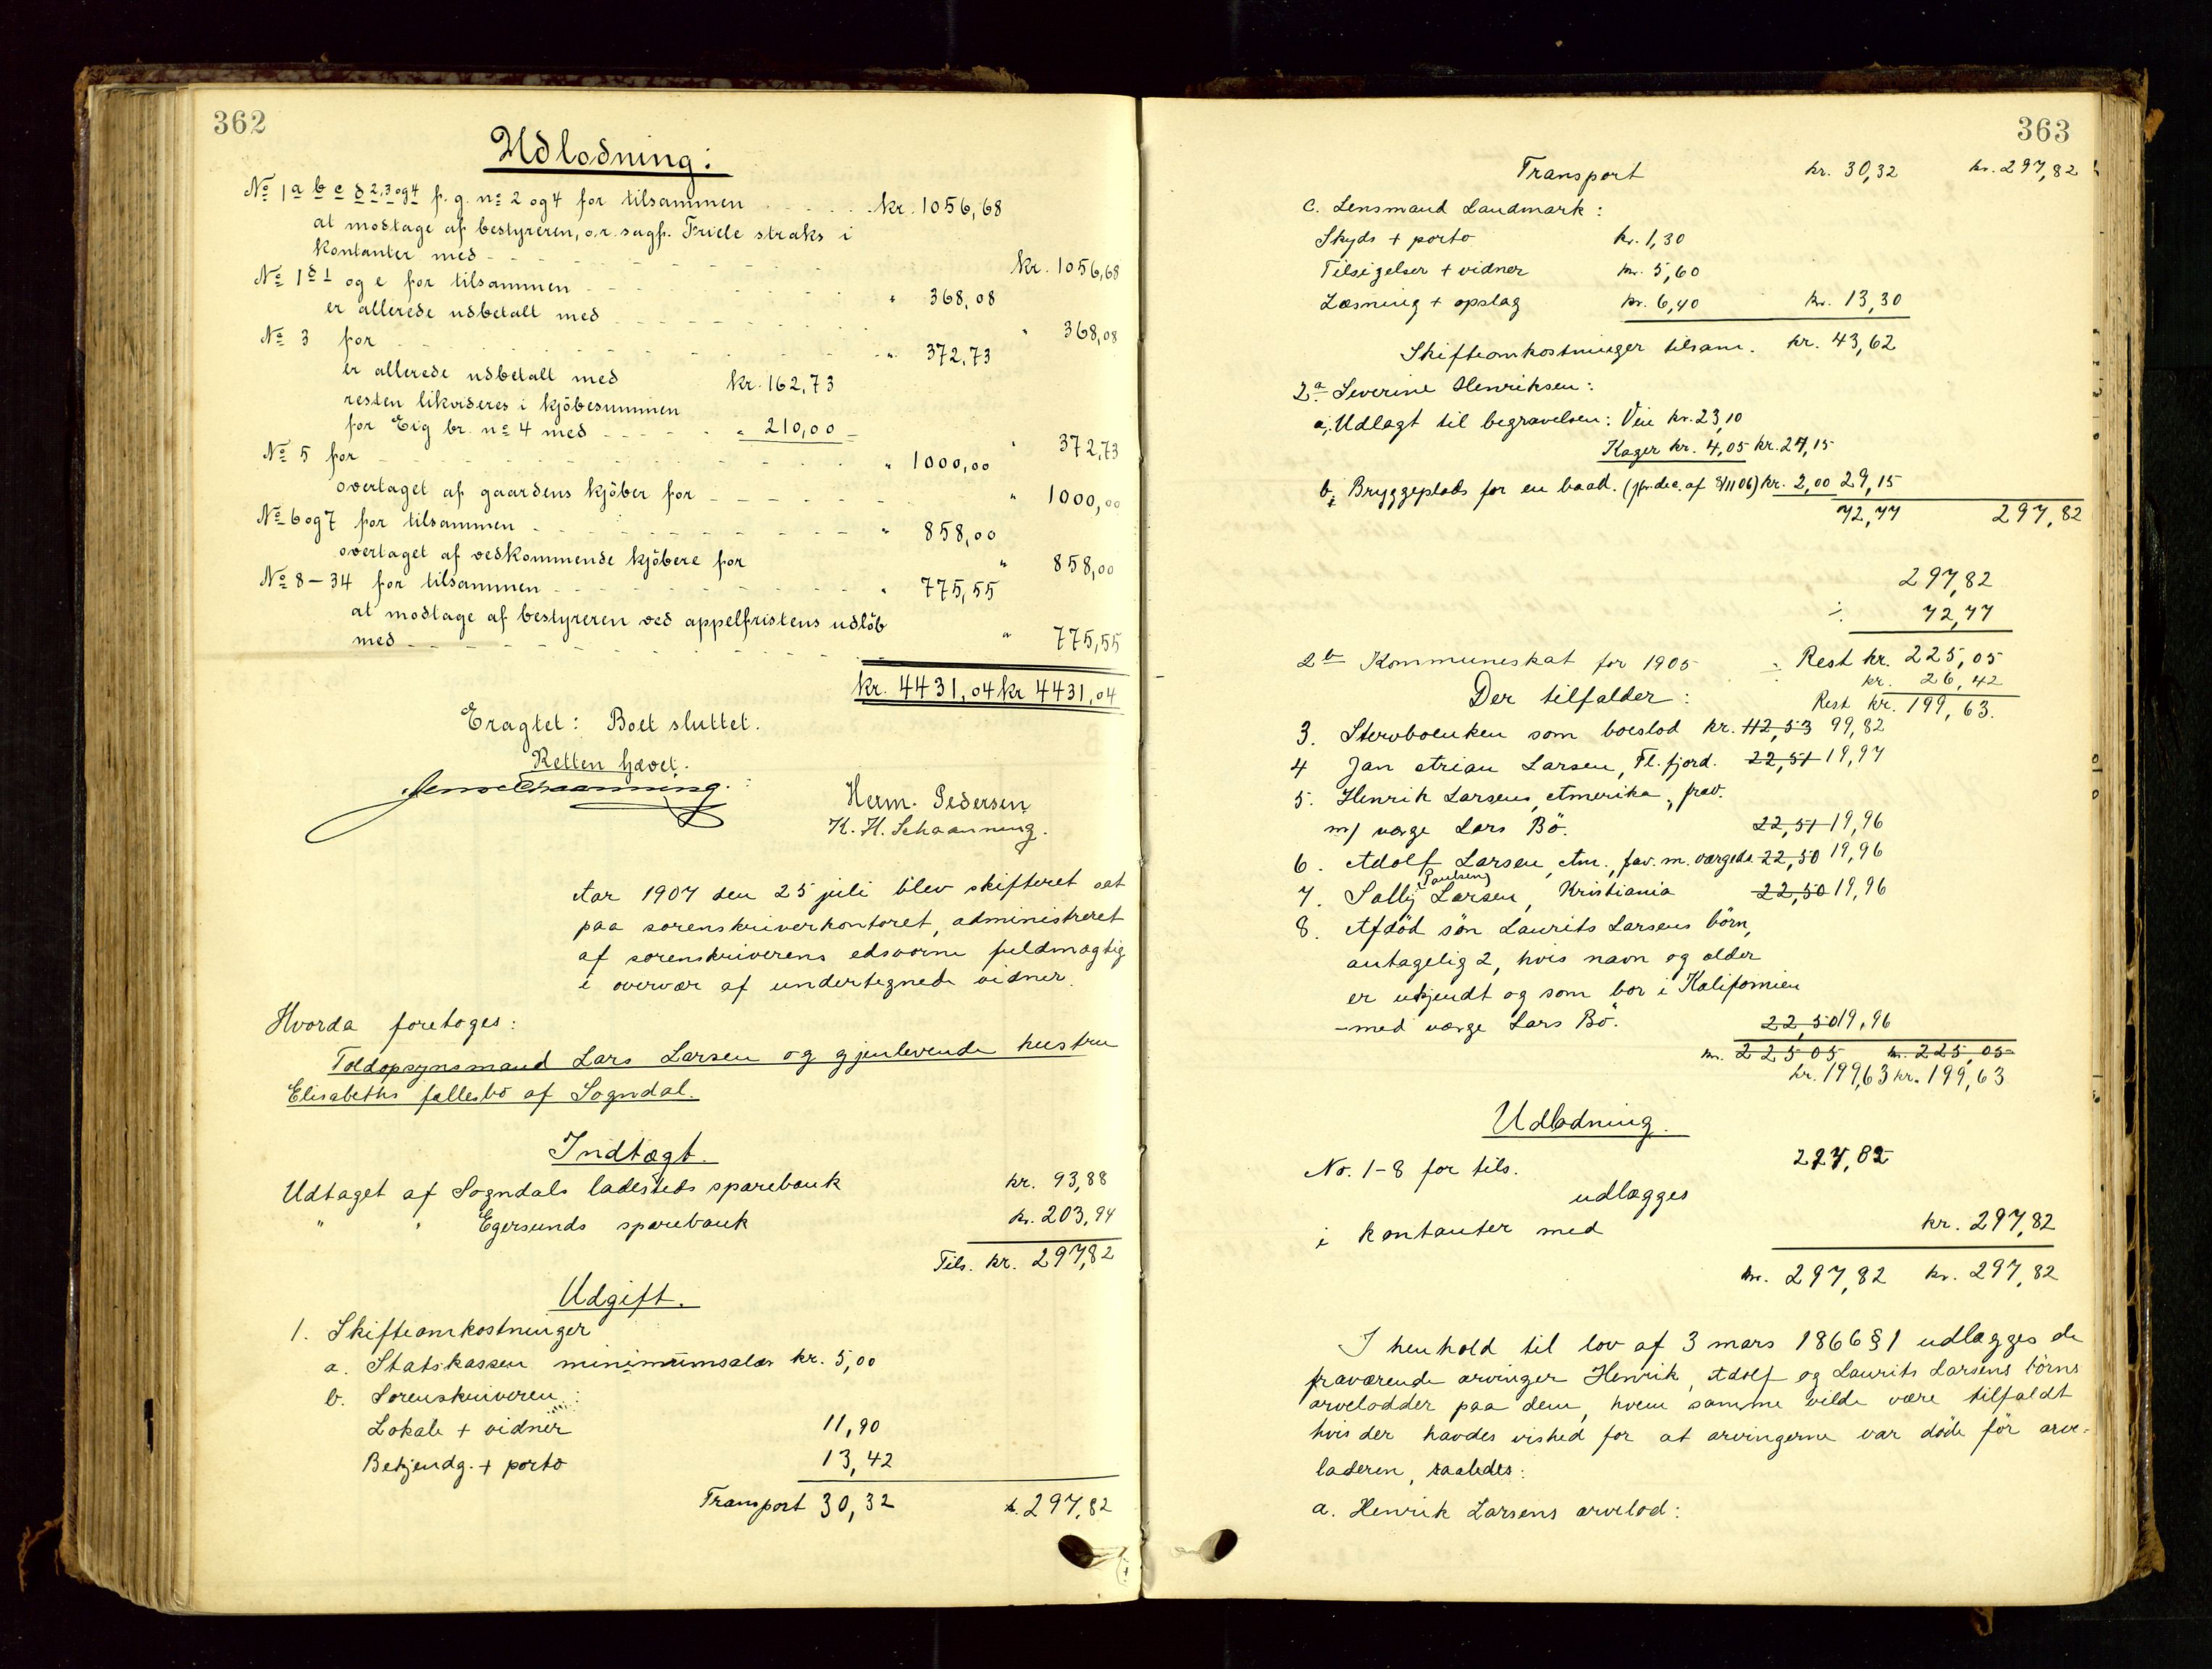 362
Udlodning:
No 1 a b c d 2, 3 og 4 f. g. no 2 og 4 for tilsammen kr. 1056,68
at modtage af bestyreren, o.r. sagf. Friele straks i
kontanter med kr. 1056,68
No 1 d 1 og e for tilsammen " 368,08
er allerede udbetalt med " 368,08
No 3 for " 372,73
er allerede udbetalt med kr. 162,73
resten likvideres i kjöbesummen
for Eig br. no 4 med " 210,00 " 372,73
No 5 for " 1000,00
overtaget af gaardens kjöber for " 1000,00
No 6 og 7 for tilsammen " 858,00
overtaget af vedkommende kjöbere for " 858,00
No 8 – 34 for tilsammen " 775,55
at modtage af bestyreren ved appelfristens udlöb
med " 775,55
kr. 4431,04 kr 4431,04
Eragtet: Boet sluttet.
Retten hævet.
Jens Schaanning.
Herm. Pedersen
K. H. Schaanning.
Aar 1907 den 25 juli blev skifteret sat
paa sorenskriverkontoret, administreret
af sorenskriverens edsvorne fuldmægtig
i overvær af undertegnede vidner.
Hvorda foretoges:
Toldopsynsmand Lars Larsen og gjenlevende hustru
Elisabeths fællesbo af Sogndal.
Indtægt.
Udtaget af Sogndals ladesteds sparebank kr. 93,88
" " Egersunds sparebank kr. 203,94
Tils. kr. 297,82
Udgift.
1. Skifteomkostninger
a. Statskassen minimumsalær kr. 5,00
b. Sorenskriveren:
Lokale + vidner 11,90
Bekjendg. + porto 13,42
Transport 30,32 k. 297,82
363
Transport kr. 30,32 kr. 297,82
c. Lensmand Landmark:
Skyds + porto kr. 1,30
Tilsigelser + vidner kr. 5,60
Læsning + opslag kr. 6,40 kr. 13,30
Skifteomkostninger tilsam. kr. 43,62
2a Severine Henriksen:
a, Udlagt til begravelsen: Vin kr. 23,10
Kager kr. 4,05 kr. 27,15
b, Bryggeplads for en baad. (jfr. dec. af 8/11 06) kr. 2,00 29,15
72,77 297,82
297,82
÷ 72,77
Rest kr. 225,05
2b Kommuneskat for 1905 ÷ kr. 26,42
Der tilfalder: Rest kr. 199,63.
3. Stervboenken som boeslod kr. 112,53 99,82
4 Jan Arian Larsen, Fl.fjord. 22,51 19,97
5. Henrik Larsens, Amerika, frav.
m/ værge Lars Bö. 22,51 19,96
6. Adolf Larsen, Am., fav. m. værgeds. 22,50 19,96
(Paulsen)
7. Sally Larsen, Kristiania 22,50 19,96
8. Afdöd sön Laurits Larsens börn,
antagelig 2, hvis navn og alder
er ukjendt og som bor i Kalifornien
– med værge Lars Bö. 22,50 19,96
kr. 225 05 kr. 225,05
kr. 199,63 kr. 199,63
Udlodning.
No. 1-8 for tils. 297,82
udlægges
i kontanter med kr. 297,82
kr. 297,82 kr. 297,82
I henhold til lov af 3 mars 1866 § 1 udlægges de
fraværende arvinger Henrik, Adolf og Laurits Larsens börns
arvelodder paa dem, hvem samme vilde være tilfaldt
hvis der havdes vished for at arvingerne var döde för arve-
laderen, saaledes:
a. Henrik Larsens arvelod: